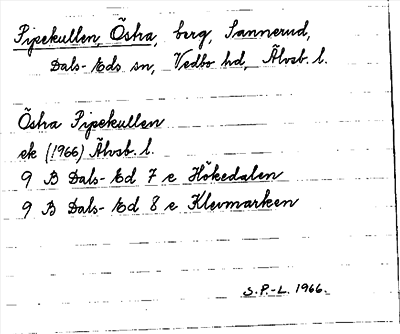 Pipekullen, Östra, berg, Sannerud,
Dals-Eds sn, Vedbo hd, Älvsb. l.
Östra Pipekullen
ek (1966) Älvsb. l.
9 B Dals-Ed 7 e Hökedalen
9 B Dals-Ed 8 e Klevmarken
S.P.-L. 1966.